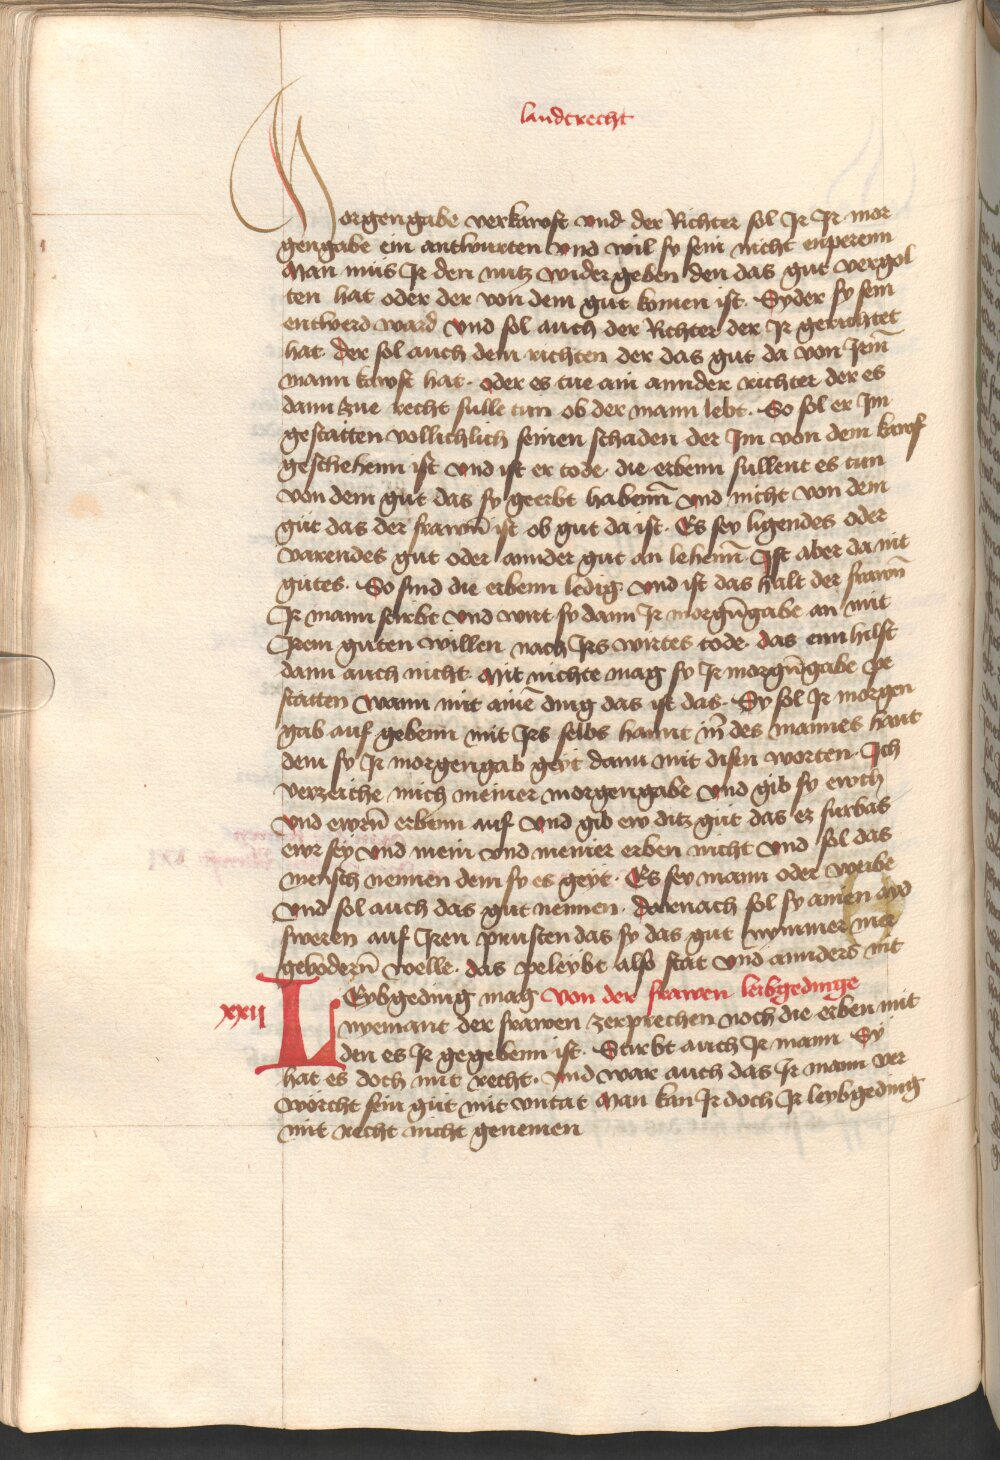 landtrecht
Morgengabe verkawft vnd der Richter sol Ir Ir mor
gengabe ein antwurten vnd wil sy sein nicht enperenn
Man mus Ir den nutz wider geben den das gut vergol
ten hat oder der von dem gut komen ist. Syder sy sein
entwerd ward vnd sol auch der Richter der Ir gerichtet
hat der sol auch dem richten der das gut da von Irem̄
mann kawft hat. oder es tue ain annder richter der es
dann zue recht sulle tun ob der mann lebt. So sol er Im
gestatten vollichlich seinen schaden der Im von dem kawf
geschehenn ist vnd ist er tode. die erbenn sullent es tun
von dem gut das sy geerbt habenn̄ vnd nicht von dem
gut das der frawn̄ ist ob gut da ist. Es sey ligendes oder
varendes gut oder annder gut an lehenn̄ Ist aber da nit
gutes. So sind die erbenn ledig vnd ist das halt der frawn̄
Ir mann stirbt vnd wirt sy dann Ir morgn̄gabe an mit
Irem guten willen nach Irs wirtes tode. das enn hilft
dann auch nicht. Mit nichte mag sy Ir morgn̄gabe pe
statten wann mit aine ding das ist das. Sy sol Ir morgen
gab auf gebenn mit Irs selbs hannt in̄ des mannes hant
dem sy Ir morgengab geyt dann mit disen worten. Ich
verzeiche mich meiner morgengabe vnd gib sy ewch
vnd ewrn̄ erbenn auf vnd gib ew ditz gut das ez furbas
ewr sey vnd mein vnd meiner erben nicht vnd sol das
mensch nennen dem sy es geyt. Es sey mann oder weibe
vnd sol auch das gut nennen. darnach sol sy ainen ayd
sweren auf Iren prusten das sy das gut nymmer mer
gevodern̄ welle. das peleybt also stät vnd annders nit
xxii LEybgeding mag von der frawen leibgedinge
nyemant der frawen zerprechen noch die erben mit
den es Ir gegebenn ist. Stirbt auch Ir mann Sy
hat es doch mit recht. vnd war auch das Ir mann ver
worcht sein gut mit vntat Man kan Ir doch Ir leybgeding
mit recht nicht genemen